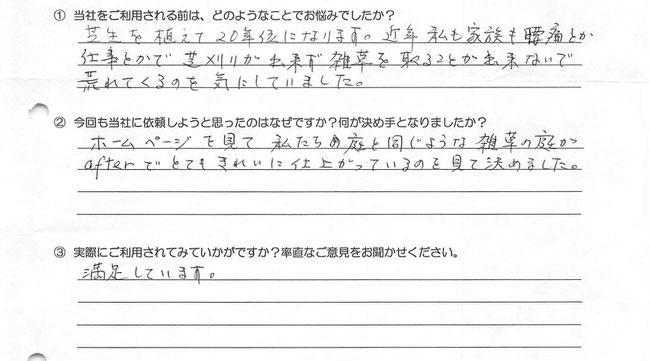 ① 当社をご利用される前は、どのようなことでお悩みでしたか？
芝生を植えて20年位になります。近年 私も家族も腰痛とか
仕事とかで芝刈りが出来ず雑草を取ることが出来ないで
荒れてくるのを気にしていました。
② 今回も当社に依頼しようと思ったのはなぜですか？何が決め手となりましたか？
ホームページを見て 私たちの庭と同じような雑草の庭が
afterでとてもきれいに仕上がっているのを見て決めました。
③ 実際にご利用されてみていかがですか？率直なご意見をお聞かせください。
満足しています。